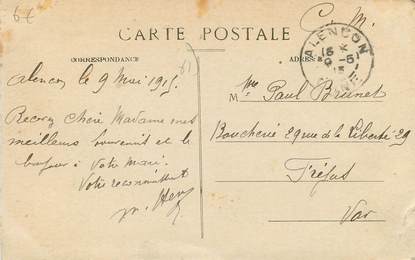 6€
C. M.
CARTE POSTALE
CORRESPONDANCE
ALENCON
Alençon le 9 Mai 1915
Recevez Chère Madame mes
meilleurs souvenirs et le
bonjour à Votre Mari.
Votre reconnaissant
Mme Paul Brunet
Boucherie 29 rue de la Liberté 29
Fréjus
Var